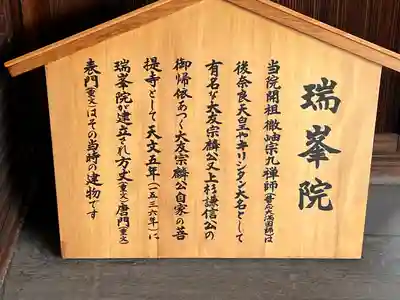 瑞峯院
当院開祖徹岫宗九禅師(普應大満国師)は
後奈良天皇やキリシタン大名として
有名な大友宗麟公又上杉謙信公の
御帰依あつく大友宗麟公自家の菩
提寺として天文五年(一五三六年)に
瑞峯院が建立され方丈(重文)唐門(重文)
表門(重文)はその当時の建物です